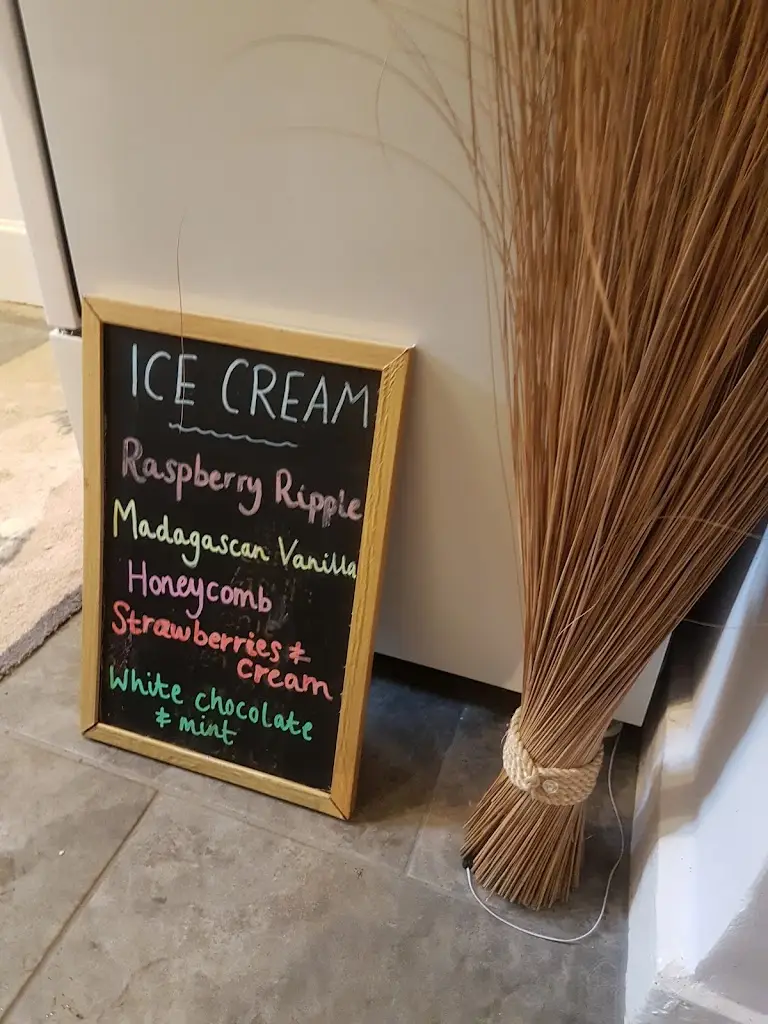 ICE CREAM
Raspberry Ripple
Madagascan Vanilla
Honeycomb
Strawberries &
Cream
White chocolate
& mint